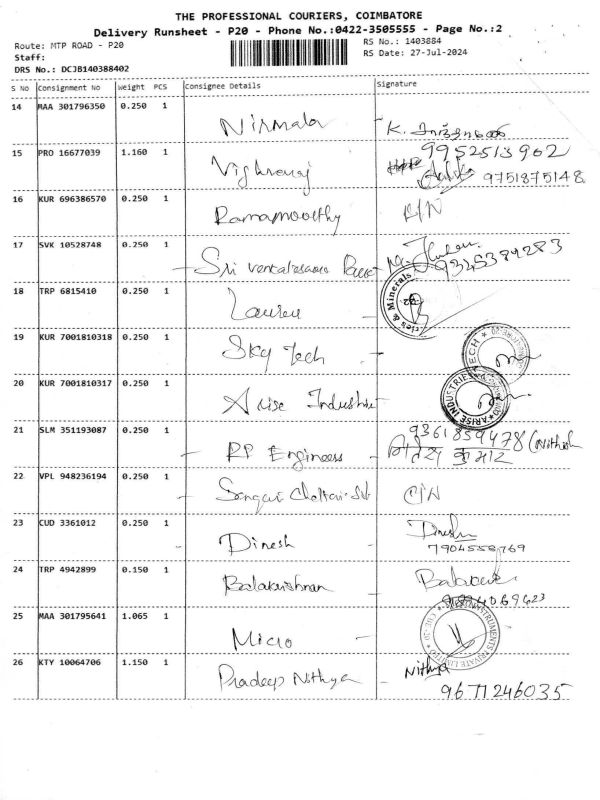 THE PROFESSIONAL COURIERS, COIMBATORE
Delivery Runsheet - P20 - Phone No.:0422-3505555 - Page No.:2
Route: MTP ROAD - P20
RS No.: 1403884
Staff:
RS Date: 27-Jul-2024
DRS No.: DCJB140388402
S No Consignment No Weight PCS Consignee Details Signature
14 MAA 301796350 0.250 1 Nirmala K.
15 PRO 16677039 1.160 1 9952513902
9751875148
16 KUR 696386570 0.250 1 Ramamoorthy
17 SVK 10528748 0.250 1 Sri
9345389283
18 TRP 6815410 0.250 1
19 KUR 7001810318 0.250 1 Sky Tech
20 KUR 7001810317 0.250 1 Arise
ARISE INDUSTRIES
21 SLM 351193087 0.250 1 RP Engineers 9361859478 (Nithesh
कुमार
22 VPL 948236194 0.250 1
23 CUD 3361012 0.250 1 Dinesh Dinesh
24 TRP 4942899 0.150 1 Balakrishnan
25 MAA 301795641 1.065 1 Micro
26 KTY 10064706 1.150 1 Pradeep Nithya Nithya
9671246035